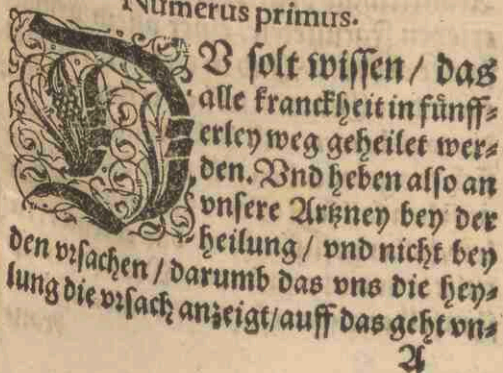 Numerus primus.
DV solt wissen / das
alle kranckheit in fünff⸗
erley weg geheilet wer⸗
den. Vnd heben also an
vnsere Artzney bey der
heilung / vnd nicht bey
den vrsachen / darumb das vns die hey⸗
lung die vrsach anzeigt / auff das geht vn⸗
A